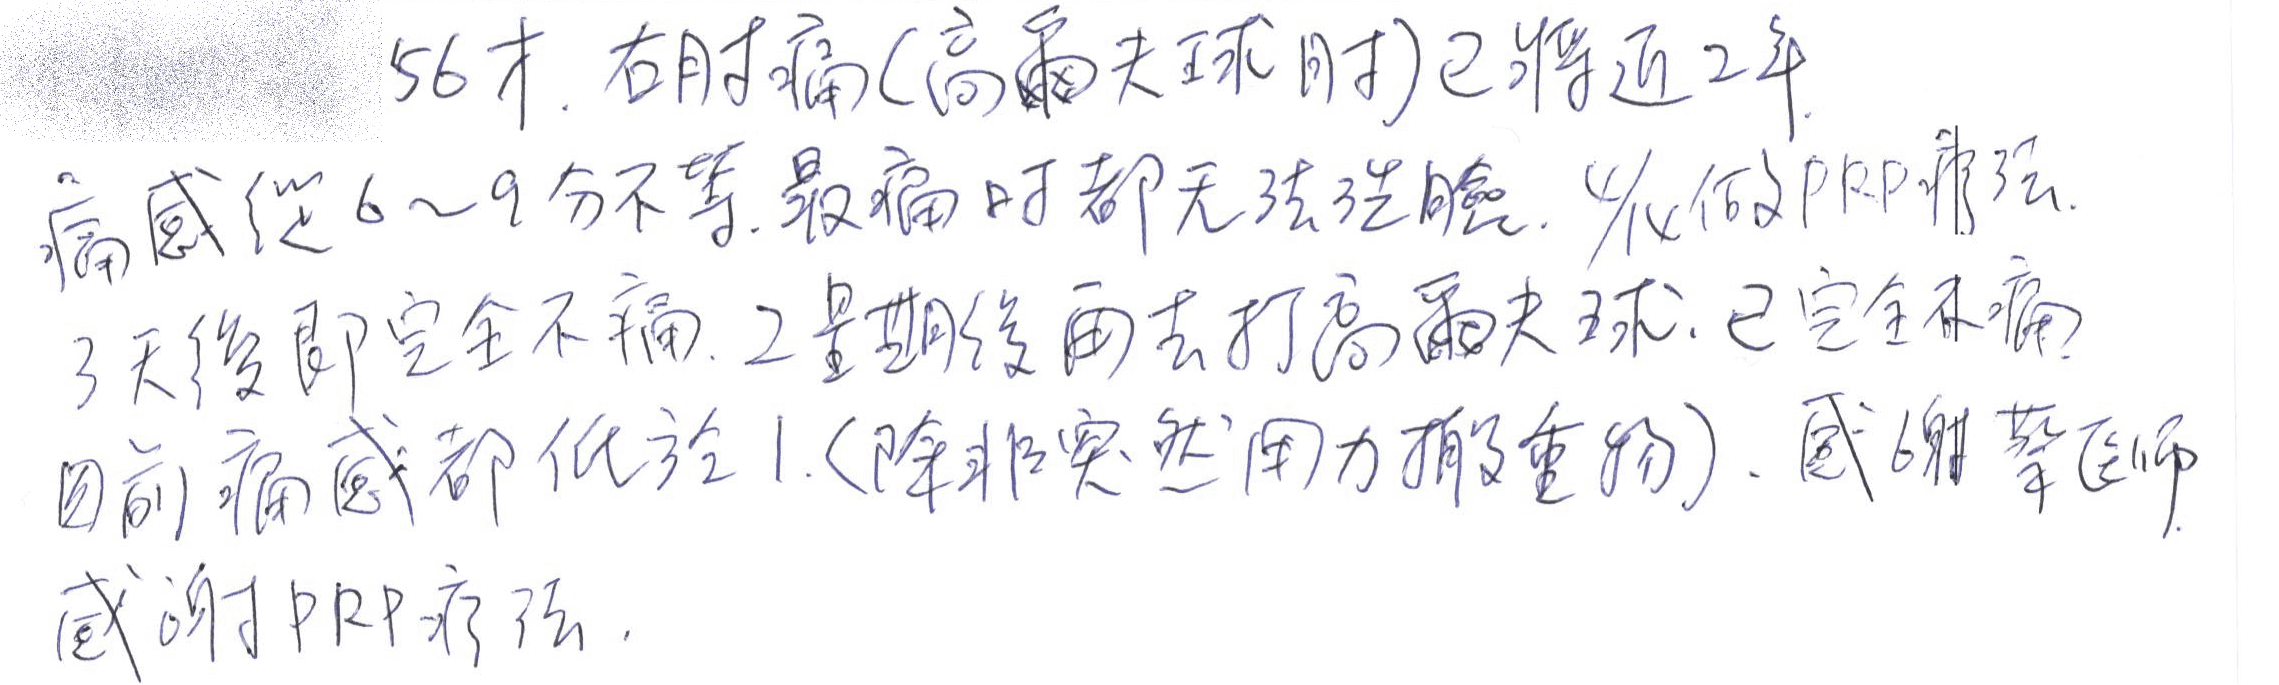 56才. 右肘痛(高爾夫球肘)已將近2年.
痛感從6~9分不等. 最痛时都无法洗臉. 4/14做PRP療法.
3天後即完全不痛. 2星期後再去打高爾夫球. 已完全不痛.
目前痛感都低於1.(除非突然用力搬重物). 感謝 蔡医师.
感謝PRP疗法.